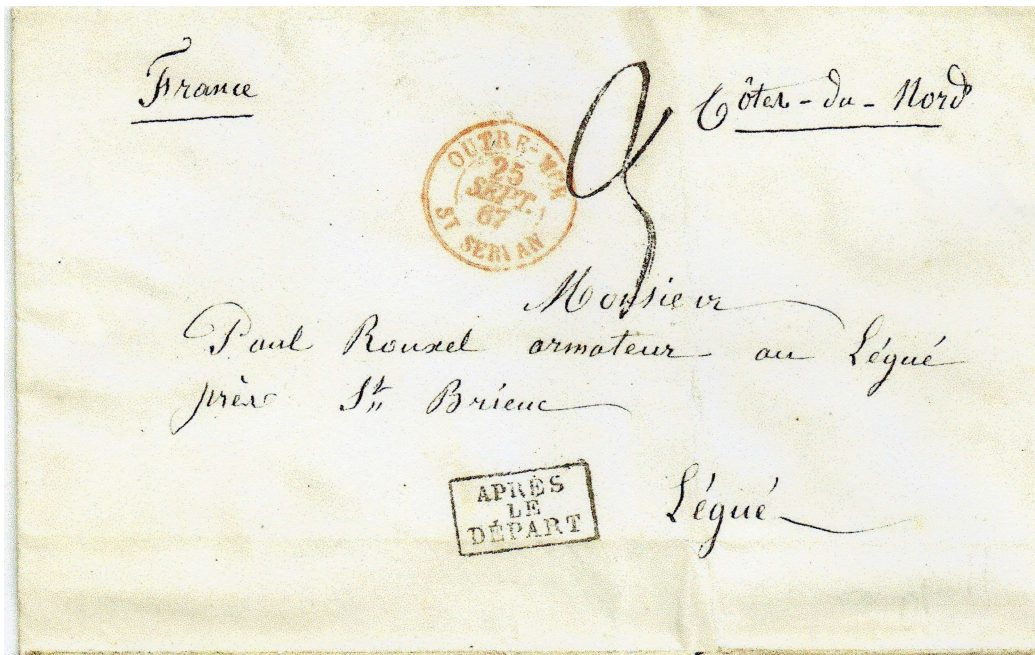 France
Côtes-du-Nord
OUTRE-MER
25
SEPT.
67
ST SERVAN
3
Monsieur
Paul Rouxel armateur au Légué
près St Brieuc
APRÈS
LE
DÉPART
Légué